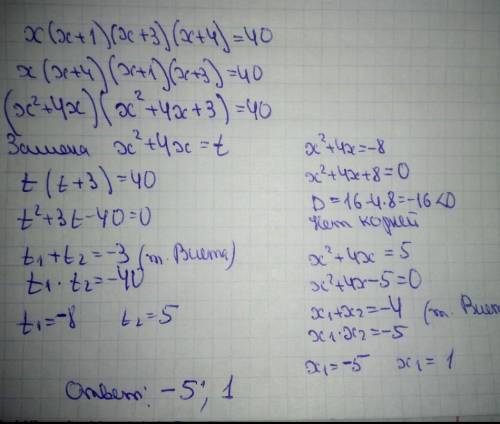 x(x+1)(x+3)(x+4)=40
x(x+4)(x+1)(x+3)=40
(x²+4x)(x²+4x+3)=40
Замена x²+4x=t
t(t+3)=40
t²+3t-40=0
t₁+t₂=-3 (т. Виета)
t₁·t₂=-40
t₁=-8 t₂=5
x²+4x=-8
x²+4x+8=0
D=16-4·8=-16<0
Нет корней
x²+4x=5
x²+4x-5=0
x₁+x₂=-4 (т. Виет
x₁·x₂=-5
x₁=-5 x₁=1
Ответ: -5; 1